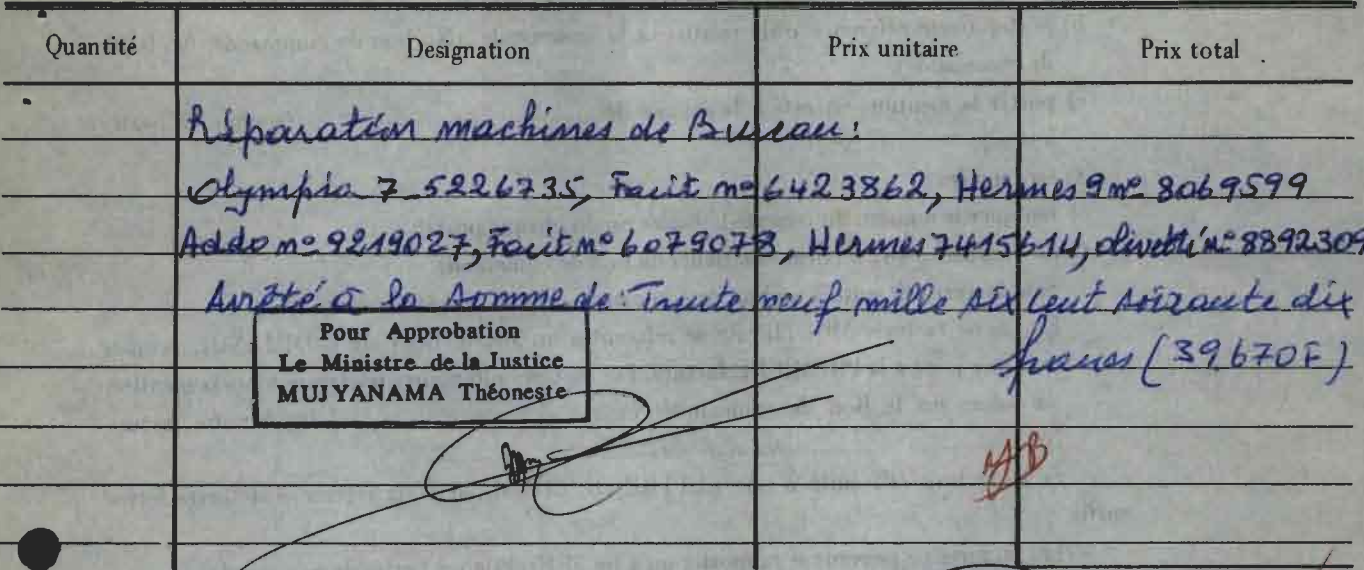 Quantité Designation Prix unitaire Prix total
Réparation machines de Bureau:
Olympia 7_5226735, Facit nº 6423862, Hermes 9 nº 8069599
Addo nº 9219027, Facit nº 6079078, Hermes 7415614, olivetti nº 8892309
Arrêté à la somme de: Trente neuf mille six cent soixante dix
francs (39.670F)
Pour Approbation
Le Ministre de la Justice
MUJYANAMA Théoneste